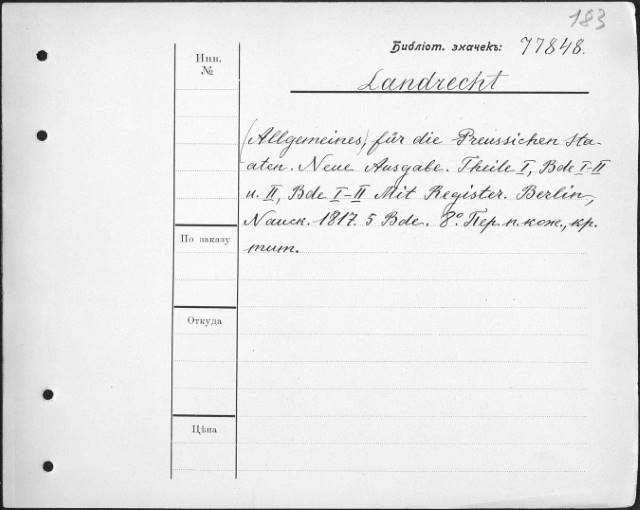 183
Библіот. значекъ: 77848.
Инв.
№
Landrecht
(Allgemeines) für die Preussichen Sta-
aten. Neue Ausgabe. Theile I, Bde I-II
u. II, Bde I-II Mit Register. Berlin,
Nauck. 1817. 5 Bde. 8º. Пер. п. кож., кр.
тит.
По заказу
Откуда
Цѣна